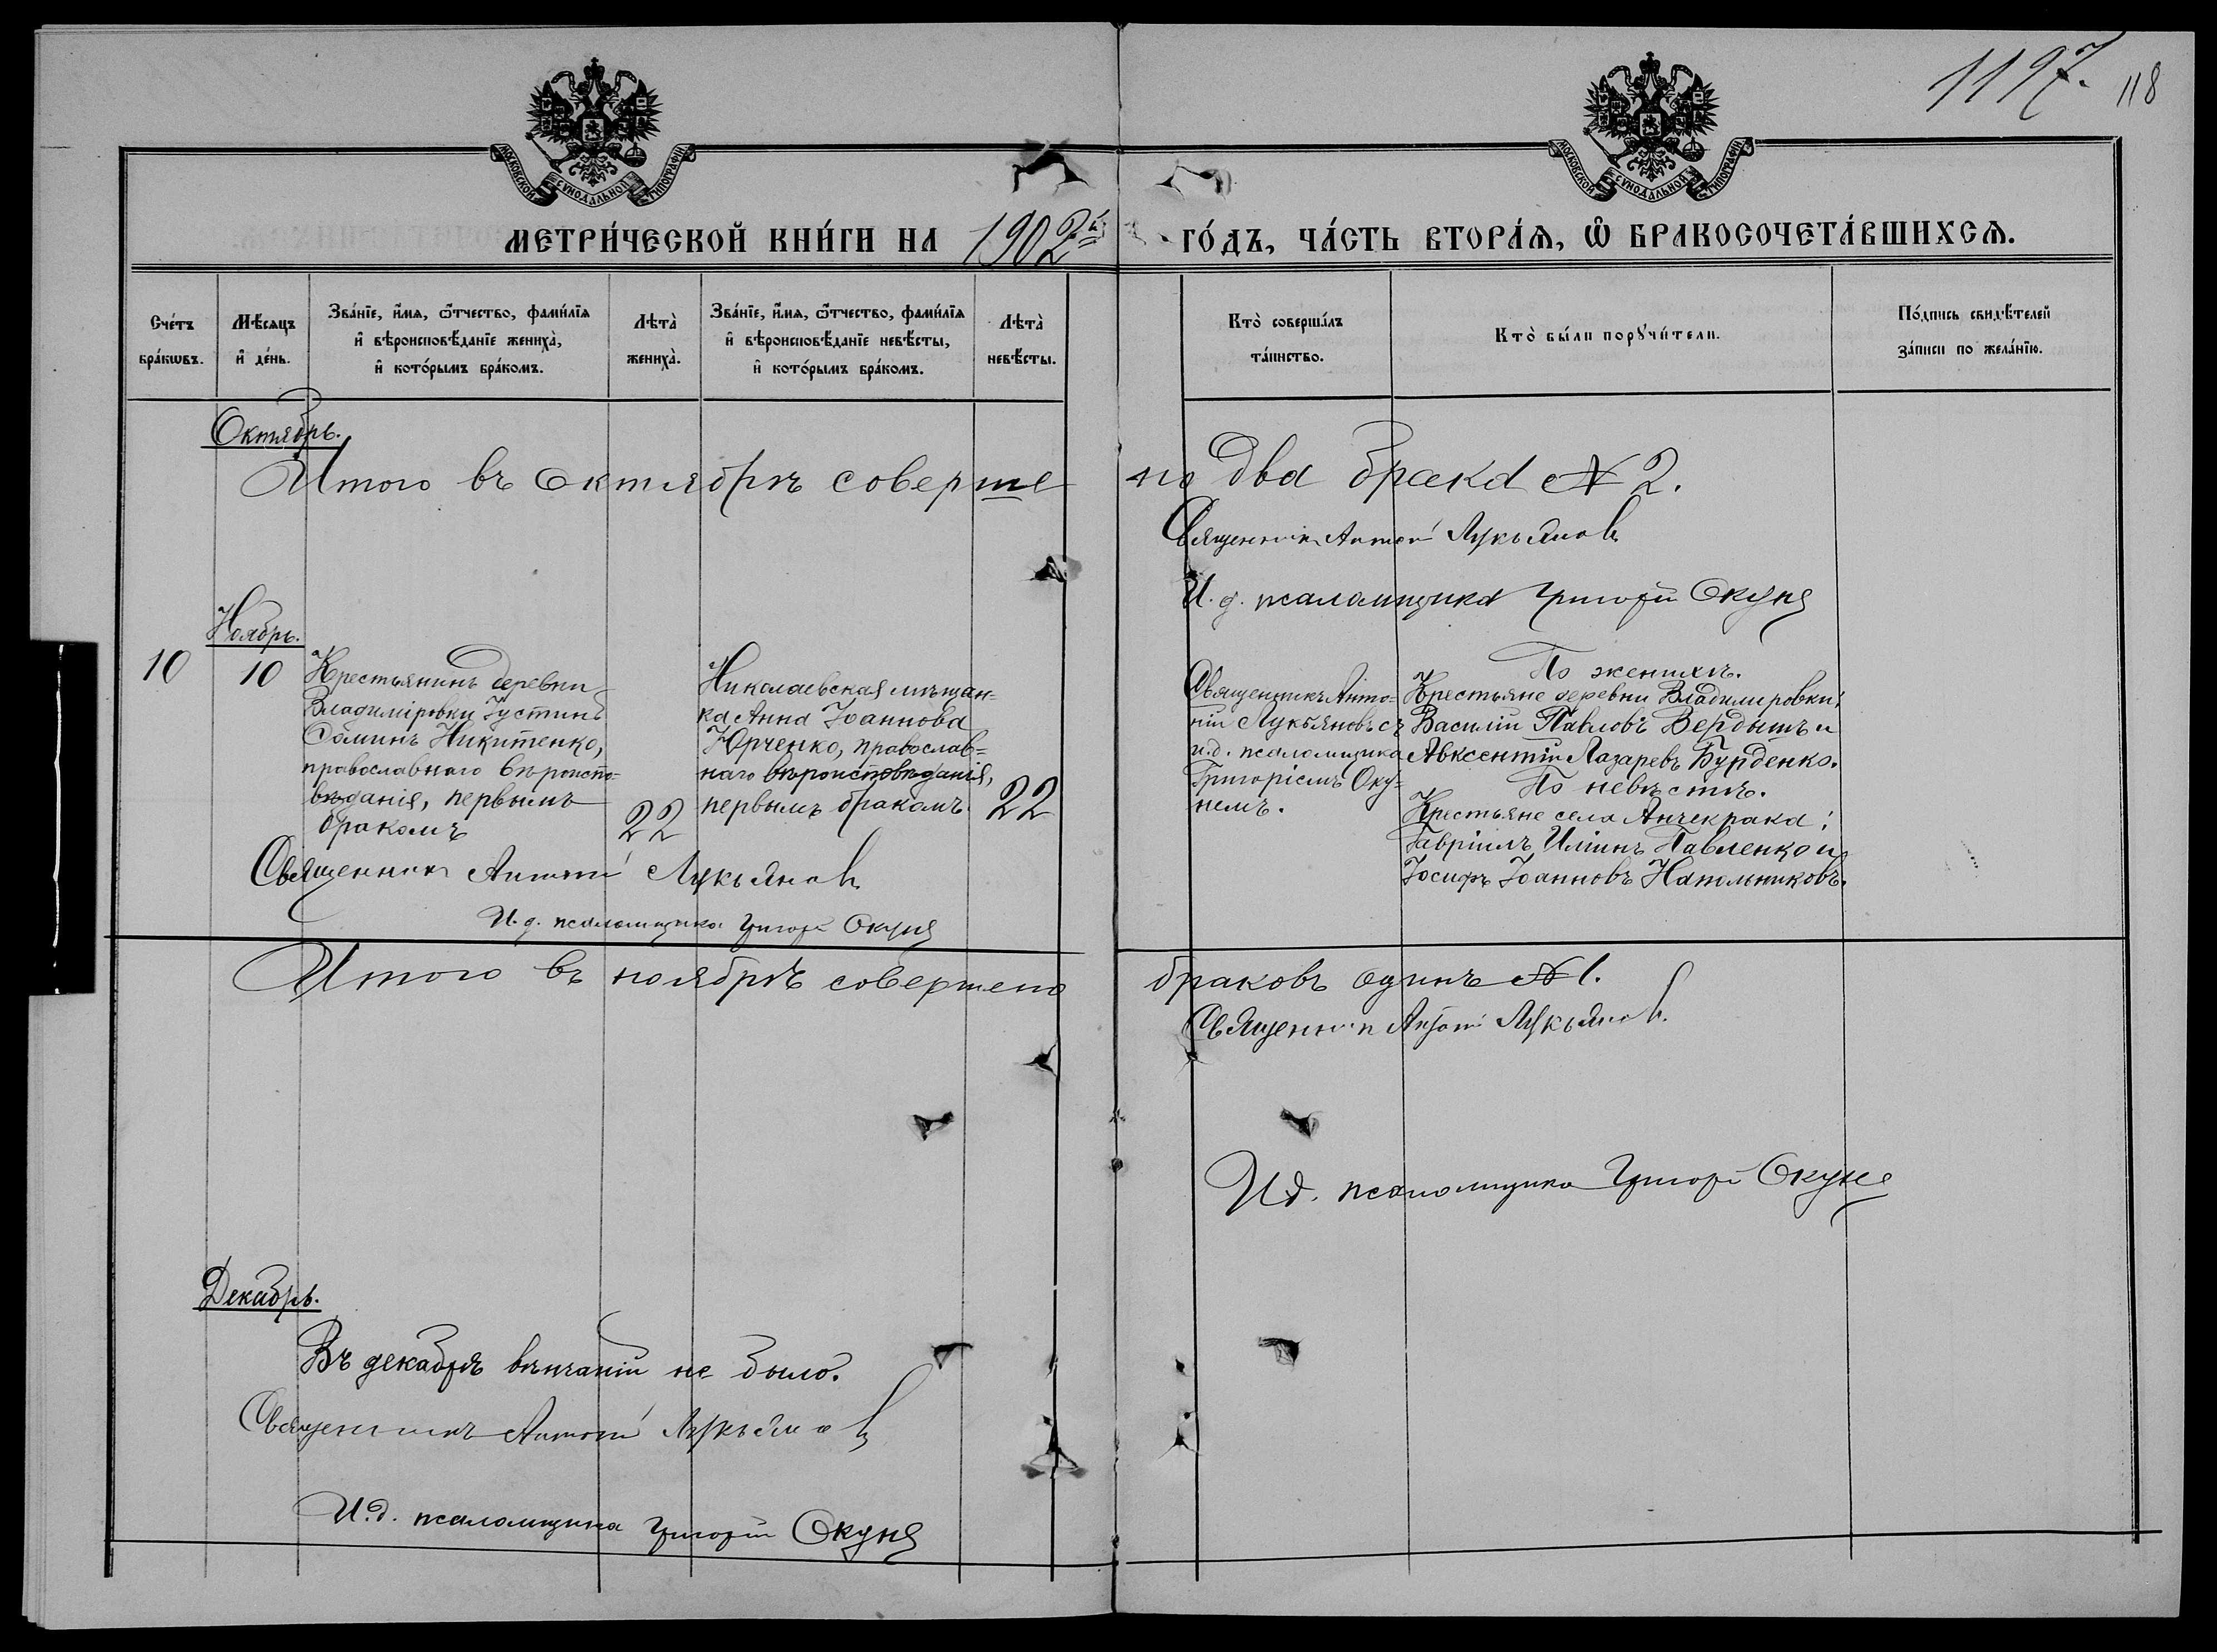 1197.
118
МОСКОВСКОЙ СѴНОДАЛЬНОЙ ТИПОГРАФІИ
МОСКОВСКОЙ СѴНОДАЛЬНОЙ ТИПОГРАФІИ
МЕТРИ́ЧЕСКОЙ КНИ́ГИ НА 1902й ГО́ДЪ, ЧА́СТЬ ВТОРА́Ѧ, Ѽ БРАКОСОЧЕТА́ВШИХСѦ.
Сче́тъ
бра́кѡвъ.
Мѣ́сяцъ
и҆ де́нь.
Зва́нїе, и҆́мѧ, ѻ҆́тчество, фами́лїѧ
и҆ вѣроисповѣ́данїе жениха̀,
и҆ кото́рымъ бра́комъ.
Лѣта̀
жениха̀.
Зва́нїе, и҆́мѧ, ѻ҆́тчество, фами́лїѧ
и҆ вѣроисповѣ́данїе невѣ́сты,
и҆ кото́рымъ бра́комъ.
Лѣта̀
невѣ́сты.
Кто̀ соверша́лъ
та́инство.
Кто̀ бы́ли порꙋчи́тели.
По́дпись свидѣ́телей
за́писи по жела́нїю.
Октябрь.
Итого въ октябрѣ соверше
но два брака № 2.
Священникъ Антоній Лукьяновъ
И. д. псаломщика Григорій Окунь
Ноябрь.
10
10
Крестьянинъ деревни
Владиміровки Іустинъ
Ѳоминъ Никитенко,
православнаго вѣроиспо-
вѣданія, первымъ
бракомъ
22
Николаевская мѣщан-
ка Анна Іоаннова
Юрченко, православ-
наго вѣроисповѣданія,
первымъ бракомъ.
22
Священникъ Анто-
ній Лукьяновъ съ
и.д. псаломщика
Григоріемъ Оку-
немъ.
По женихѣ.
Крестьяне деревни Владимировки:
Василій Павловъ Вердышъ и
Авксентій Лазаревъ Бурденко.
По невѣстѣ.
Крестьяне села Анчекрака:
Гавріилъ Иліинъ Павленко и
Іосифъ Іоанновъ Напольниковъ.
Священникъ Антоній Лукьяновъ
И. д. псаломщика Григорій Окунь
Итого въ ноябрѣ совершено
браковъ одинъ № 1.
Священникъ Антоній Лукьяновъ.
И.д. псаломщика Григорій Окунь
Декабрь.
Въ декабрѣ вѣнчаній не было.
Священникъ Антоній Лукьяновъ
И.д. псаломщика Григорій Окунь